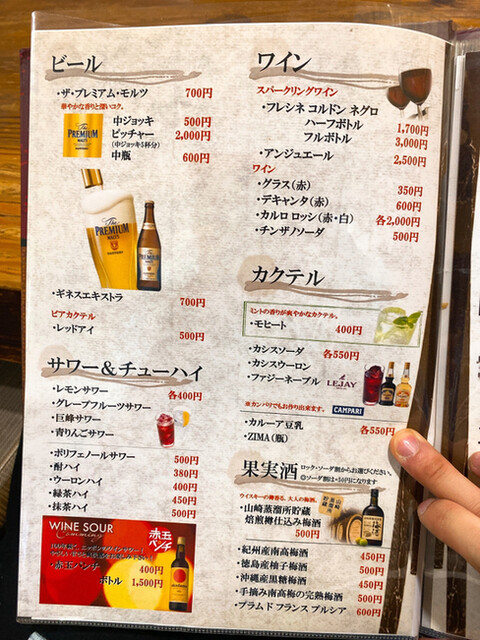 ビール
・ザ・プレミアム・モルツ 700円
華やかな香りと深いコク。
中ジョッキ 500円
ピッチャー 2,000円
(中ジョッキ5杯分)
中瓶 600円
The PREMIUM MALT'S
The PREMIUM MALT'S
・ギネスエキストラ 700円
ビアカクテル
・レッドアイ 500円
サワー&チューハイ
・レモンサワー 各400円
・グレープフルーツサワー
・巨峰サワー
・青りんごサワー
・ポリフェノールサワー 500円
・酎ハイ 380円
・ウーロンハイ 400円
・緑茶ハイ 450円
・抹茶ハイ 500円
WINE SOUR
Comming
赤玉パンチ
・赤玉パンチ 400円
ボトル 1,500円
ワイン
スパークリングワイン
・フレシネ コルドン ネグロ
ハーフボトル 1,700円
フルボトル 3,000円
・アンジュエール 2,500円
ワイン
・グラス(赤) 350円
・デキャンタ(赤) 600円
・カルロ ロッシ(赤・白) 各2,000円
・チンザノソーダ 500円
カクテル
ミントの香りが爽やかなカクテル。
・モヒート 400円
・カシスソーダ 各550円
・カシスウーロン
・ファジーネーブル
LEJAY
※カンパリでもお作り出来ます。
CAMPARI
・カルーア豆乳 各550円
・ZIMA(瓶)
果実酒
ロック・ソーダ割からお選びください。
◎ソーダ割は+50円になります
ウイスキーの樽香る、大人の梅酒。
・山崎蒸溜所貯蔵
焙煎樽仕込み梅酒
500円
・紀州産南高梅酒 450円
・徳島産柚子梅酒 500円
・沖縄産黒糖梅酒 450円
・手摘み南高梅の完熟梅酒 500円
・プラム ド フランス プルシア 600円